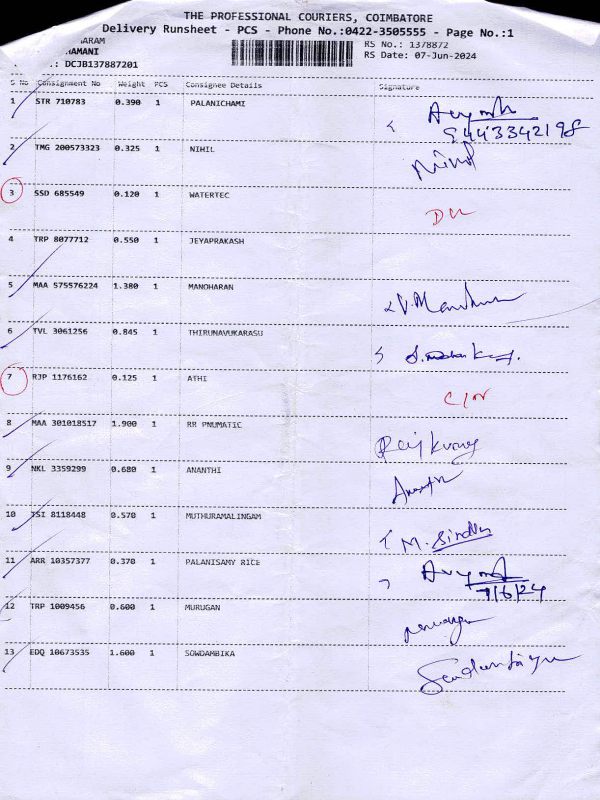 THE PROFESSIONAL COURIERS, COIMBATORE
Delivery Runsheet - PCS - Phone No.:0422-3505555 - Page No.:1
ARAM
AMANI
RS No.: 1378872
.: DCJB137887201
RS Date: 07-Jun-2024
S No Consignment No Weight PCS Consignee Details Signature
1 STR 710783 0.390 1 PALANICHAMI
9443342198
2 TMG 200573323 0.325 1 NIHIL
3 SSD 685549 0.120 1 WATERTEC
DL
4 TRP 8077712 0.550 1 JEYAPRAKASH
5 MAA 575576224 1.380 1 MANOHARAN
6 TVL 3061256 0.845 1 THIRUNAVUKARASU
7 RJP 1176162 0.125 1 ATHI
C/N
8 MAA 301018517 1.900 1 RR PNUMATIC
Rajkumar
9 NKL 3359299 0.680 1 ANANTHI
Ananthi
10 TSI 8118448 0.570 1 MUTHURAMALINGAM
M. Sindhu
11 ARR 10357377 0.370 1 PALANISAMY RICE
7/6/24
12 TRP 1009456 0.600 1 MURUGAN
13 EDQ 10673535 1.600 1 SOWDAMBIKA